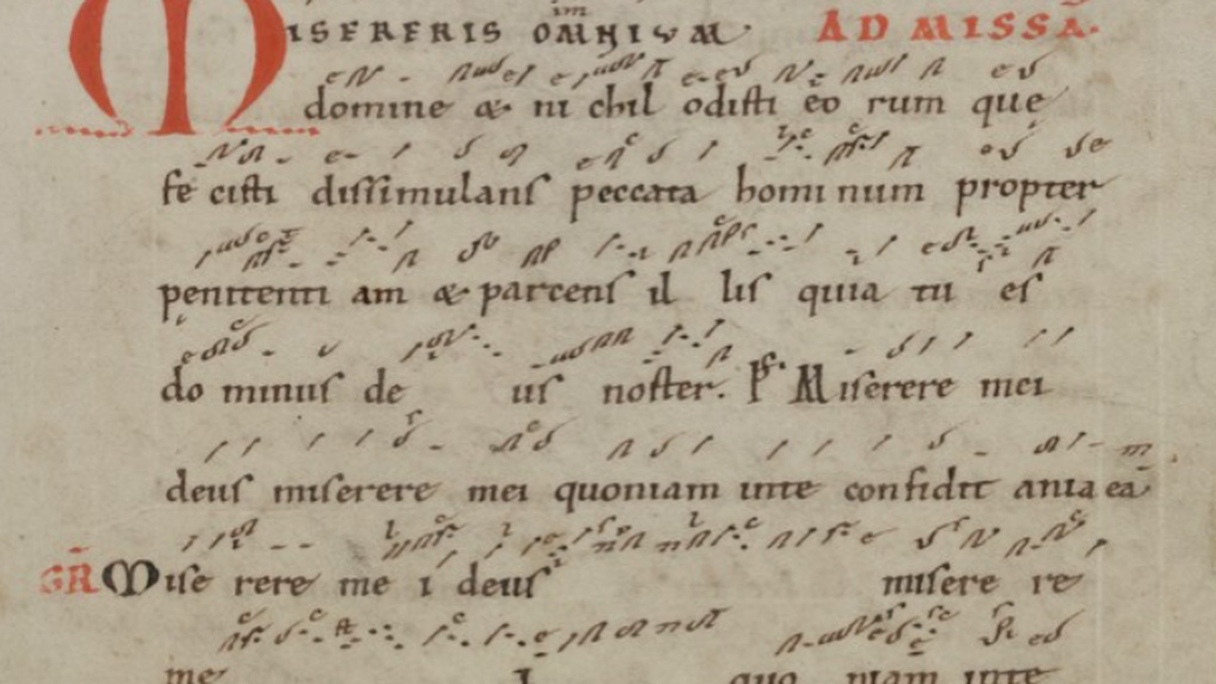 MISERERIS OMNIUM AD MISSĀ.
domine & ni chil odisti eo rum que
fe cisti dissimulans peccata homi num propter
penitenti am & parcens il lis quia tu es
do minus de us noster. Ps Miserere mei
deus miserere mei quoniam inte confidit ania ea
GR̄ Mise rere me i deus misere re
me i quo niam inte